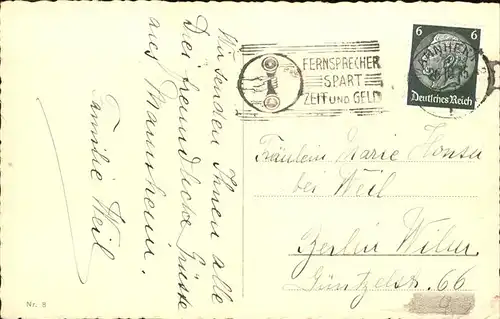 Wir senden Ihnen alle
Drei freundliche Grüsse
aus Mannheim.
Familie Weil
Nr. 8
FERNSPRECHER
SPART
ZEIT UND GELD
6 6
Deutsches Reich
Fräulein Marie
bei Weil
Berlin Wilm
Güntzelstr. 66